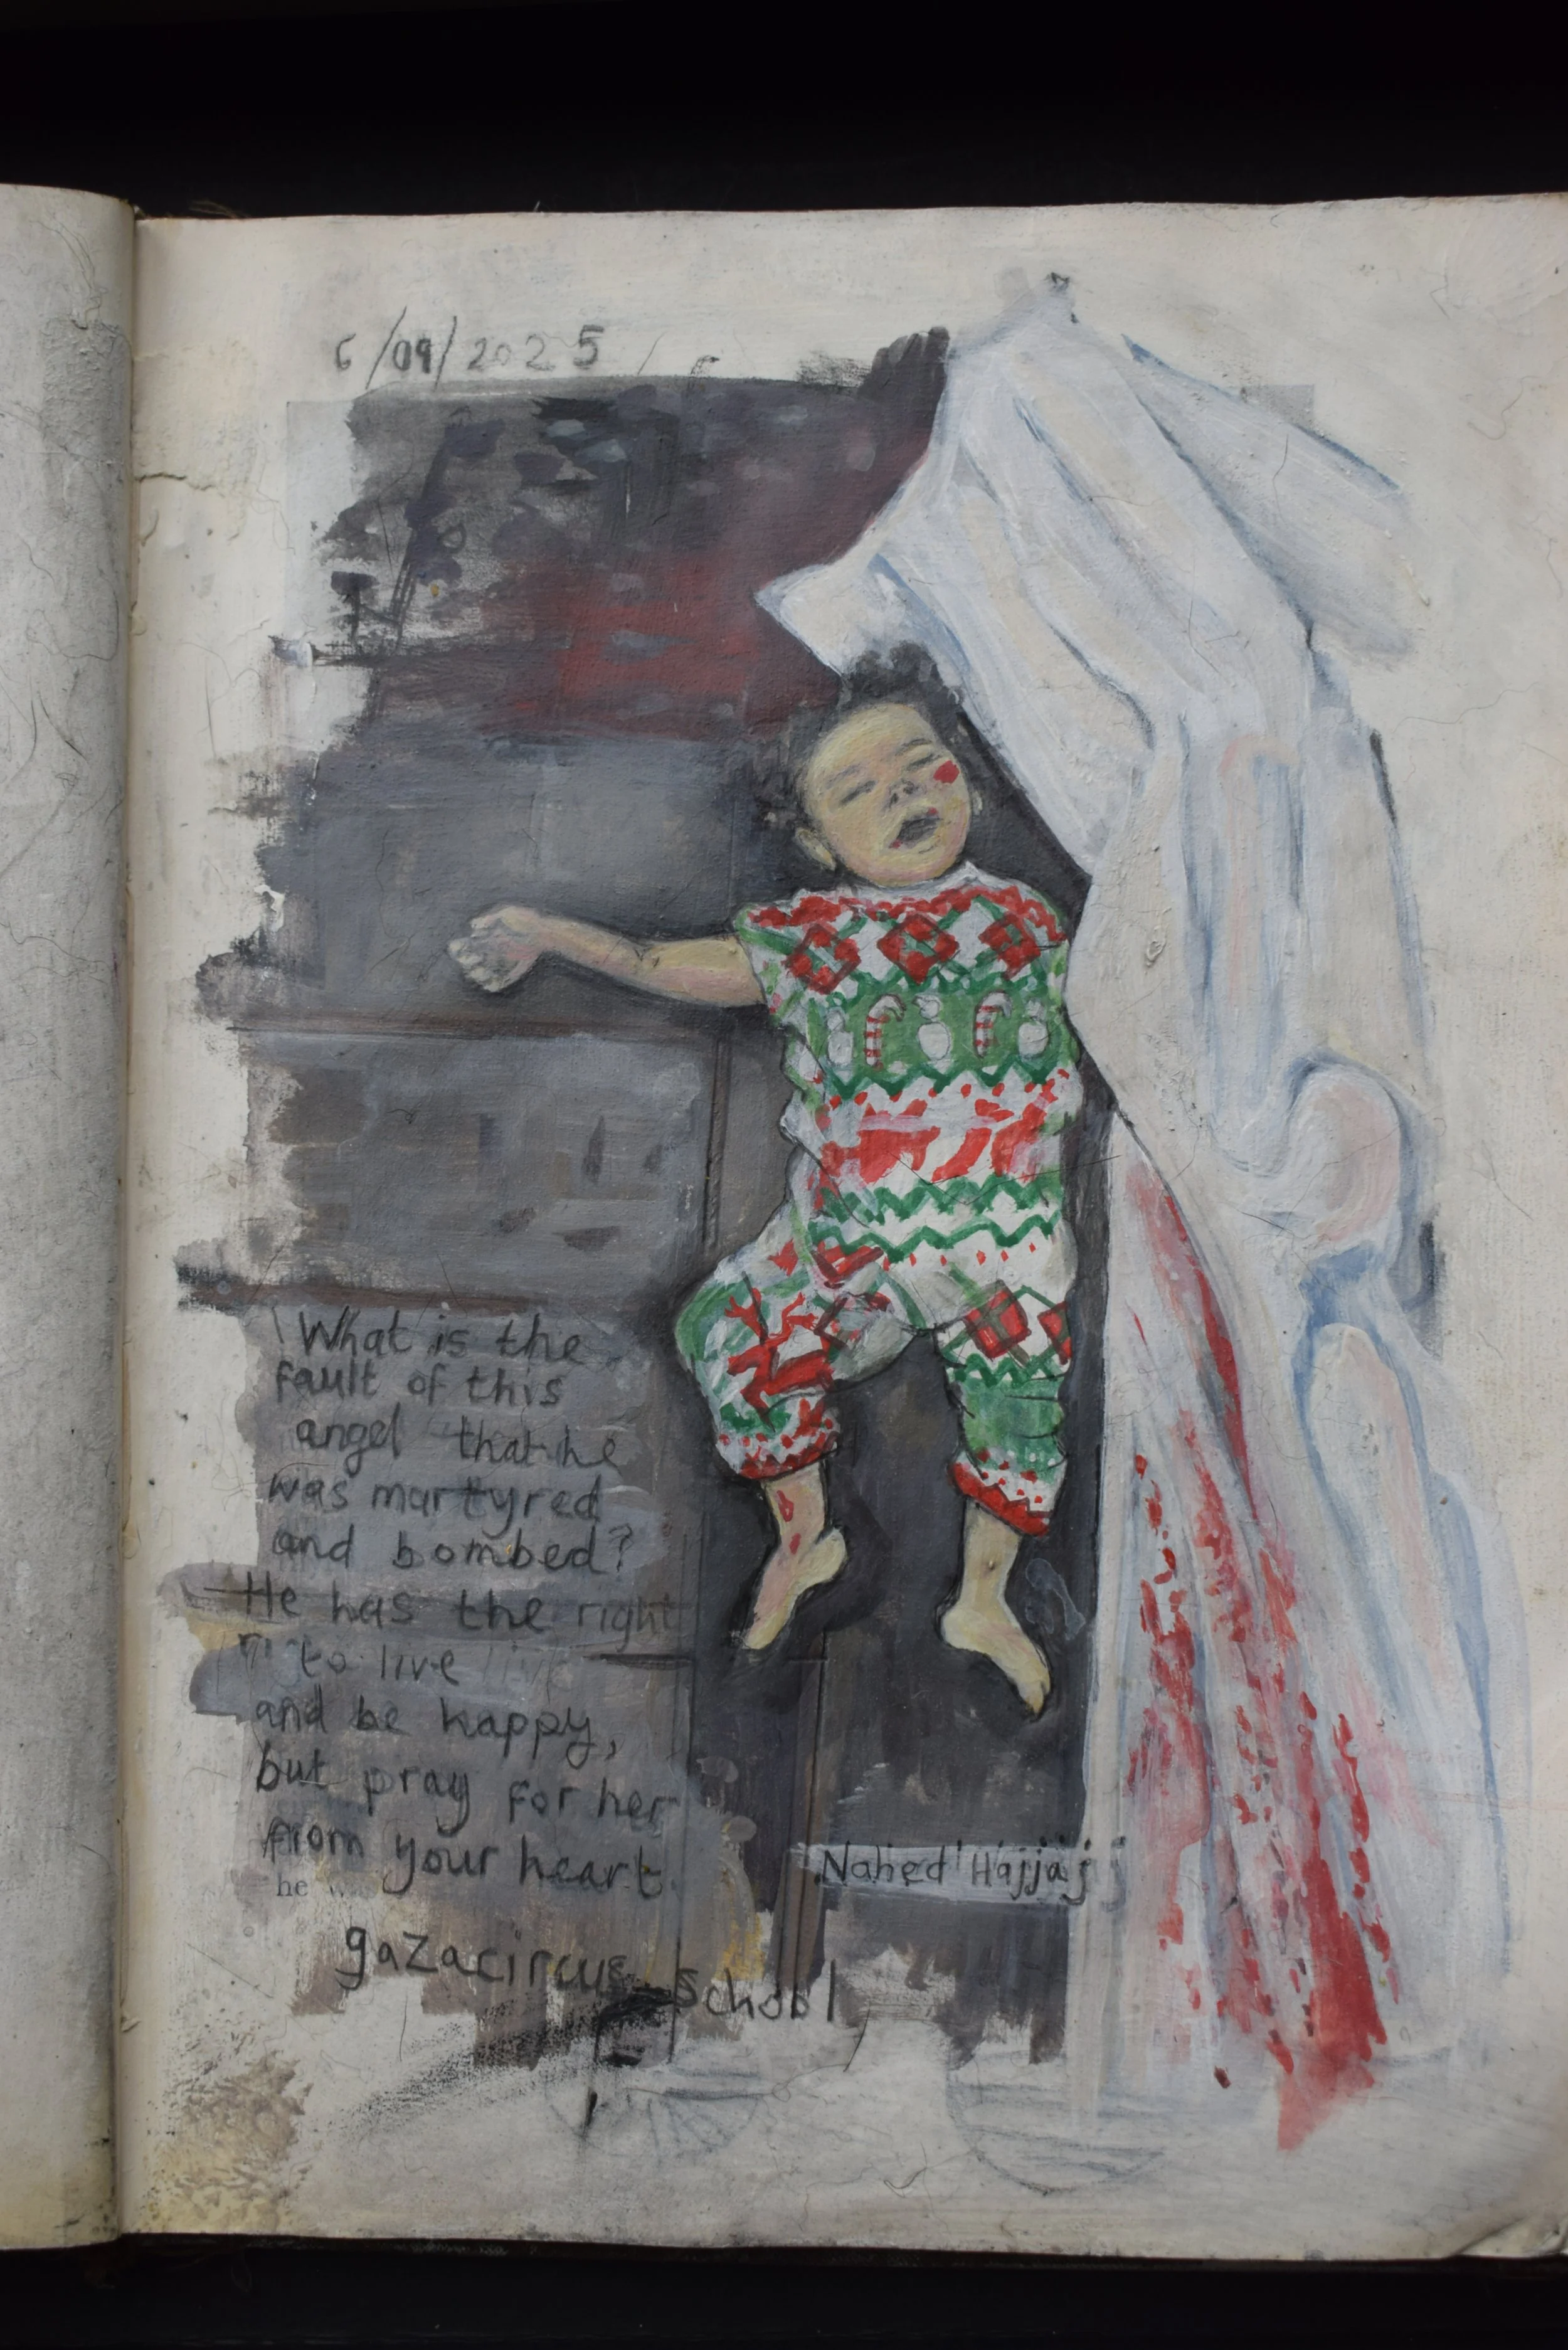 6/09/2025
What is the
fault of this
angel that he
was martyred
and bombed?
He has the right
to live
and be happy,
but pray for her
from your heart.
he
Nahed Hajjaj
gazacircus school